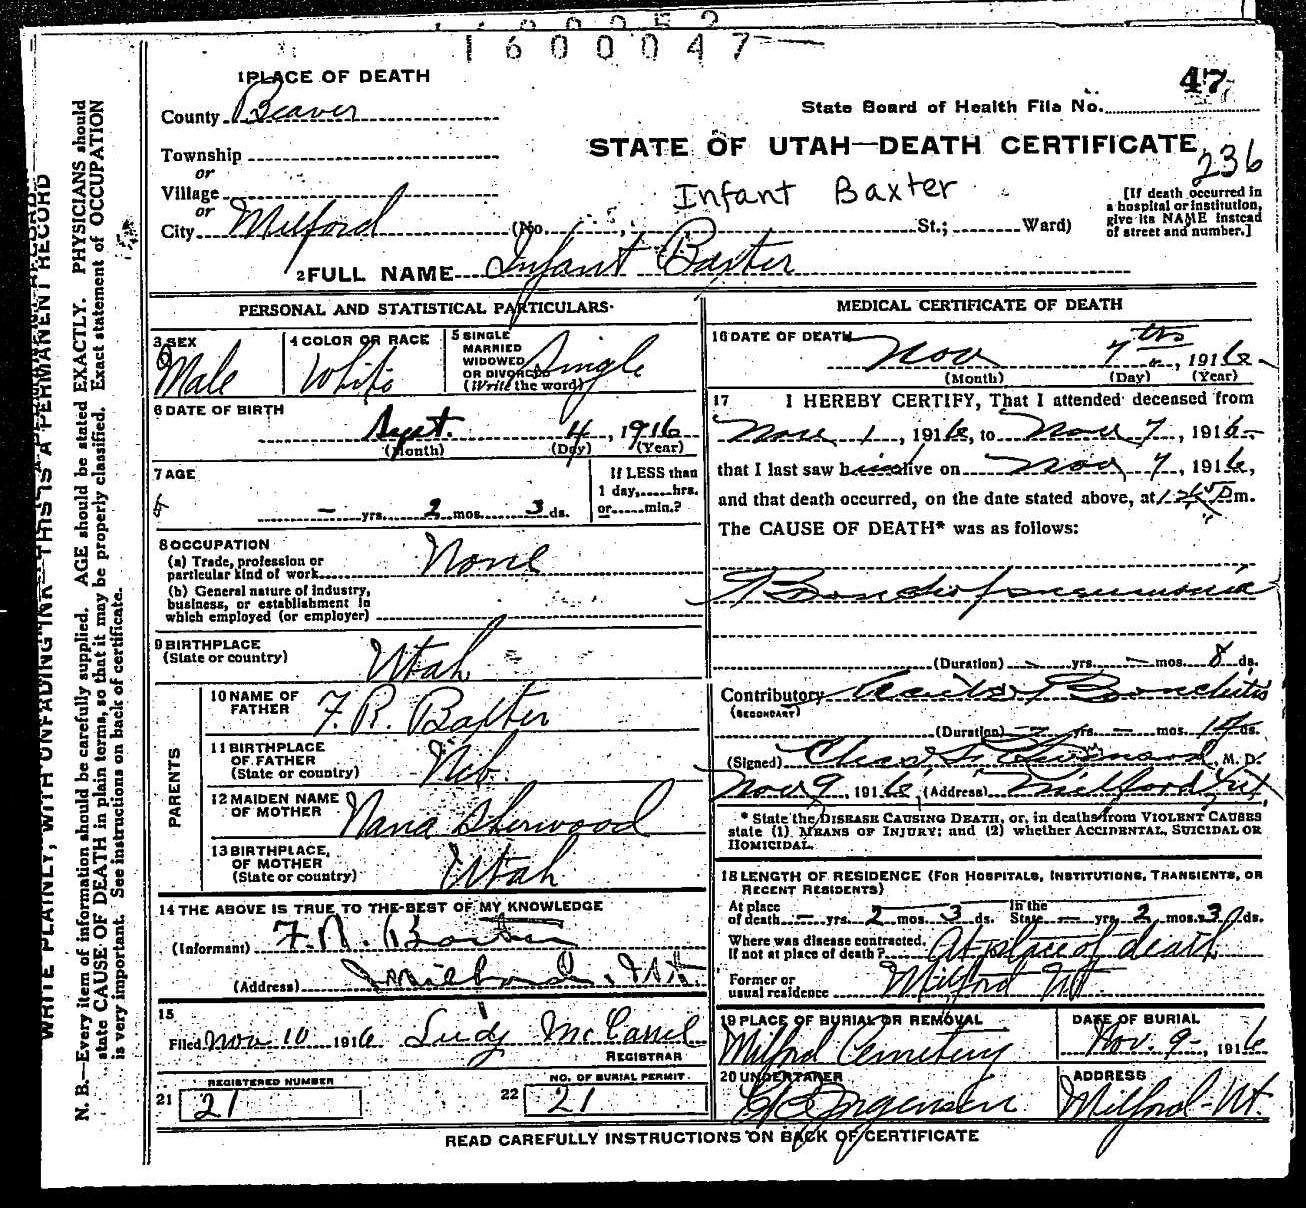 1600047
47
1 PLACE OF DEATH
State Board of Health File No.
County Beaver
STATE OF UTAH—DEATH CERTIFICATE
236
Township
or
Village
Infant Baxter
[If death occurred in
a hospital or institution,
give its NAME instead
of street and number.]
or
City Milford (No. St.; Ward)
2 FULL NAME Infant Baxter
PERSONAL AND STATISTICAL PARTICULARS
3 SEX
Male
4 COLOR OR RACE
White
5 SINGLE
MARRIED
WIDOWED
OR DIVORCED
(Write the word)
Single
6 DATE OF BIRTH
Sept. 4, 1916
(Month) (Day) (Year)
7 AGE
- yrs. 2 mos. 3 ds.
If LESS than
1 day, hrs.
or min.?
8 OCCUPATION
(a) Trade, profession or
particular kind of work None
(b) General nature of industry,
business, or establishment in
which employed (or employer)
9 BIRTHPLACE
(State or country) Utah
PARENTS
10 NAME OF
FATHER F. R. Baxter
11 BIRTHPLACE
OF FATHER
(State or country) Neb.
12 MAIDEN NAME
OF MOTHER Nana Sherwood
13 BIRTHPLACE,
OF MOTHER
(State or country) Utah
14 THE ABOVE IS TRUE TO THE BEST OF MY KNOWLEDGE
(Informant) F. R. Baxter
(Address) Milford, Ut.
15
Filed Nov. 10 1916 Ludy McCarrel
REGISTRAR
REGISTERED NUMBER
21 21
NO. OF BURIAL PERMIT
22 21
MEDICAL CERTIFICATE OF DEATH
16 DATE OF DEATH
Nov 7th, 1916
(Month) (Day) (Year)
17 I HEREBY CERTIFY, That I attended deceased from
Nov 1, 1916, to Nov 7, 1916
that I last saw him alive on Nov 7, 1916,
and that death occurred, on the date stated above, at m.
The CAUSE OF DEATH* was as follows:
Broncho pneumonia
(Duration) - yrs. - mos. 8 ds.
Contributory Acute Bronchitis
(SECONDARY)
(Duration) - yrs. - mos. ds.
(Signed) Chas , M. D.
Nov 9, 1916, (Address) Milford Ut
* State the DISEASE CAUSING DEATH, or, in deaths from VIOLENT CAUSES
state (1) MEANS OF INJURY; and (2) whether ACCIDENTAL, SUICIDAL OR
HOMICIDAL.
18 LENGTH OF RESIDENCE (FOR HOSPITALS, INSTITUTIONS, TRANSIENTS, OR
RECENT RESIDENTS)
At place
of death - yrs. 2 mos. 3 ds.
In the
State - yrs. 2 mos. 3 ds.
Where was disease contracted,
If not at place of death? At place of death
Former or
usual residence Milford Ut
19 PLACE OF BURIAL OR REMOVAL
Milford Cemetery
DATE OF BURIAL
Nov. 9-, 1916
20 UNDERTAKER
Jorgensen
ADDRESS
Milford-Ut.
READ CAREFULLY INSTRUCTIONS ON BACK OF CERTIFICATE
WRITE PLAINLY, WITH UNFADING INK—THIS IS A PERMANENT RECORD
N. B.—Every item of information should be carefully supplied. AGE should be stated EXACTLY. PHYSICIANS should
state CAUSE OF DEATH in plain terms, so that it may be properly classified. Exact statement of OCCUPATION
is very important. See instructions on back of certificate.